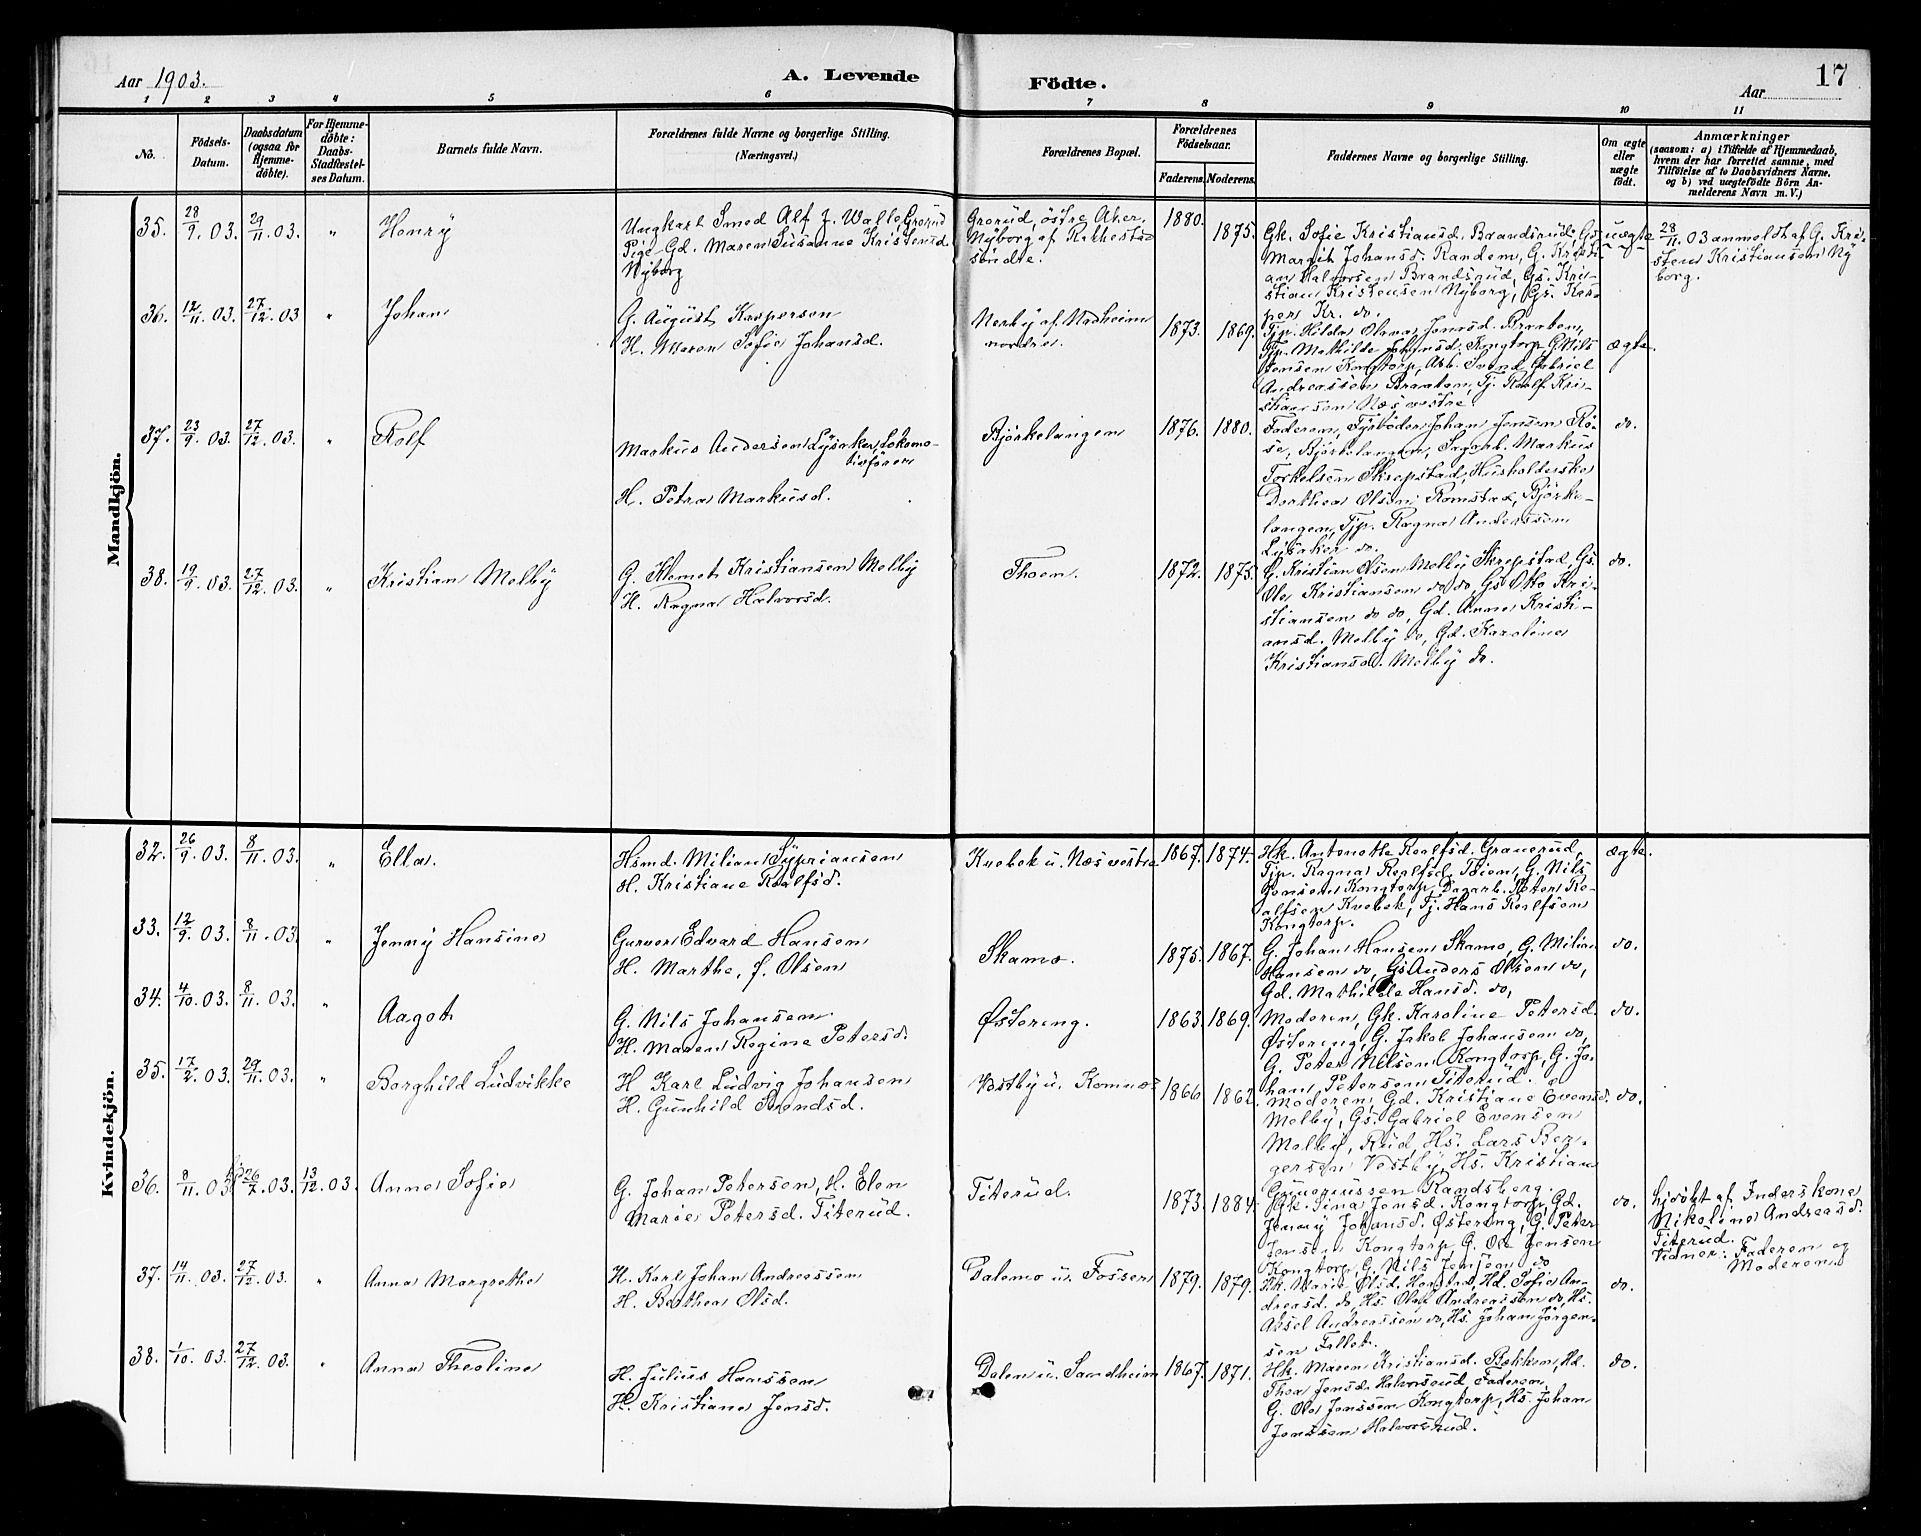 Aar 1903.
A. Levende
Födte.
Aar
17
1 2 3 4 5 6 7 8 9 10 11
No.
Födsels-Datum.
Daabsdatum (ogsaa for Hjemme-döbte).
For Hjemme-döbte: Daabs-Stadfæstel-ses Datum.
Barnets fulde Navn.
Forældrenes fulde Navne og borgerlige Stilling.
(Næringsvei.)
Forældrenes Bopæl.
Forældrenes Födselsaar.
Faderens.
Moderens.
Faddernes Navne og borgerlige Stilling.
Om ægte eller uægte födt.
Anmærkninger
(saasom: a) i Tilfælde af Hjemmedaab, hvem der har forrettet samme, med Tilföielse af to Daabsvidners Navne, og b) ved uægtefödte Börn An-melderens Navn m. V.)
Mandkjön.
35. 28/9. 03. 29/11. 03. " Henry
Ungkarl Smed Alf J. Walle Grorud
Pige Gd. Maren Susanne Kristensd.
Nyborg
Grorud, östre Aker.
Nyborg af Rakkestad
söndre.
1880. 1875.
Gk. Sofie Kristiansd. Brandsrud, Gd.
Margit Johansd. Randem, G. Kristi-
an Halvorsen Brandsrud, Gs. Kri-
stian Kristensen Nyborg, Gs. Kas-
per Kr. do.
uægte
28/11. 03 anmeldt af G. Kri-
sten Kristiansen Ny
borg.
36. 12/11. 03. 27/12. 03 " Johan
G. August Kaspersen
H. Maren Sofie Johansd.
Nerby af Nadheim
nordre.
1873. 1869.
Tjp. Hilda Olava Jensd. Braaten,
Tjp. Mathilde Johansd. Kongtorp, G. Nils
Jensen Kongtorp, Arb. Svend Gabriel
Andreassen Braaten, Tj. Roalf Kri-
stiansen Næs vestre.
ægte.
37. 23/9. 03. 27/12. 03. " Rolf
Markus Andersen Lysaker, Lokomo-
tivförer
H. Petra Markusd.
Bjørkelangen
1876. 1880.
Faderen, Fyrböder Johan Jensen Rö-
se, Bjørkelangen, Sagarb. Markus
Torkelsen Skrepstad, Husholderske
Dorthea Olsen Romstad, Bjørke-
langen, Tjp. Ragna Anderssen
Lysaker do.
do.
38. 19/9. 03. 27/12. 03. " Kristian Melby
G. Klemet Kristiansen Melby
H. Ragna Halvorsd.
Thoen.
1872. 1875.
G. Kristian Olsen Melby Skrepstad, Gs.
Ole Kristiansen do do, Gs. Otto Kri-
stiansen do do, Gd. Anna Kristi-
ansd. Melby do, Gd. Karoline
Kristiansd. Melby do.
do.
Kvindekjön.
32. 26/9. 03. 8/11. 03. " Ella.
Hsmd. Milian Syprianssen
H. Kristiane Roalfsd.
Kvebek u. Næs vestre
1867. 1874.
Hk. Antonette Roalfsd. Granerud,
Tjp. Ragna Roalfsd. Toien, G. Nils
Jensen Kongtorp, Dagarb. Peter Ro-
alfsen Kvebek, Tj. Hans Roalfsen
Kongtorp.
ægte.
33. 12/9. 03. 8/11. 03. " Jenny Hansine
Garver Edvard Hansen
H. Marthe, f. Olsen
Skamo.
1875. 1867.
G. Johan Hansen Skamo, G. Milian
Hansen do, Gs. Anders Olsen do,
Gd. Mathilde Hansd. do,
do.
34. 4/10. 03. 8/11. 03. " Aagot
G. Nils Johansen
H. Maren Regine Petersd.
Østereng.
1863. 1869.
Moderen, Gk. Karoline Petersd.
Østereng, G. Jakob Johansen do,
G. Peter Nilsen Kongtorp, G. Jo-
han Petersen Titerud.
do.
35. 17/2. 03. 29/11. 03. " Borghild Ludvikke
H Karl Ludvig Johansen
H. Gunhild Svendsd.
Vestby u. Komnæs
1866 1862.
Moderen, Gd. Kristiane Evensd.
Melby, Gs. Gabriel Evensen
Melby, Rud, Hs. Lars Ber-
gersen Vestby, Hs. Kristian
Gunerussen Randsberg.
do.
36. 8/11. 03 26/7. 03. 13/12. 03. Anna Sofie
G. Johan Petersen, H. Elen
Marie Petersd. Titerud.
Titerud.
1873. 1884.
Gk. Sina Jensd. Kongtorp, Gd.
Jenny Johansd. Østereng, G. Peter
Jensen Kongtorp, G. Ole Jensen
Kongtorp, G. Nils Jensen do
do.
hjdöbt af Inderskone
Nikoline Andreasd.
Titerud.
Vidner: Faderen og
Moderen.
37. 14/11. 03. 27/12. 03. " Anna Margrethe
H. Karl Johan Andreassen
H. Berthea Olsd.
Dalemo u. Fosser
1879. 1879.
Hk. Marie Olsd. Harstad, Hd. Sofie An-
dreasd. do, Hs. Olaf Andreassen do, Hs.
Aksel Andreassen do, Hs. Johan Jörgen-
sen Fallet.
do.
38. 1/10. 03. 27/12. 03. " Anna Theoline
H. Julius Hanssen
H. Kristiane Jensd.
Dalen u. Sandheim
1867. 1871.
Hk. Maren Kristiansd. Bekken, Hd.
Thea Jensd. Halvorsrud, Faderen,
G. Ole Jenssen Kongtorp, Hs. Johan
Jenssen Halvorsrud.
do.